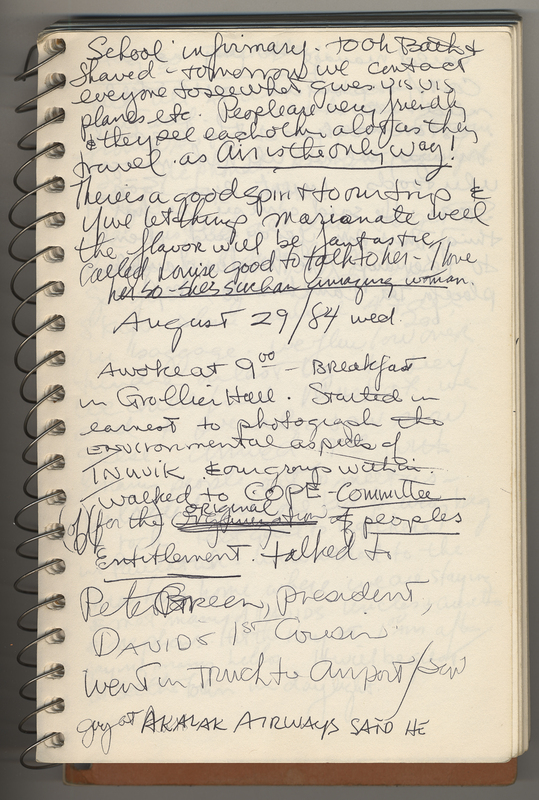 School infirmary. Took Bath &
Shaved - tomorrow we contact
everyone to see what gives vis vis
planes etc. People are very friendly
& they see each other a lot as they
travel. as Air is the only way!
There is a good spirit to our trip &
if we let things marianate well
the flavor will be fantastic
Called Louise good to talk to her - I love
her so - she's such an amazing woman.
August 29/84 wed.
Awoke at 9⁰⁰ - Breakfast
in Grollier Hall. Started in
earnest to photograph the
ENVIRONmental aspects of
INUVIK & our group within.
I walked to COPE - Committee
(off) for the original of peoples
Entitlement. talked to
Peter Green, president
DAVIDS 1ST Cousin
Went in truck to airport/saw
guy at AKALAK AIRWAYS SAID HE